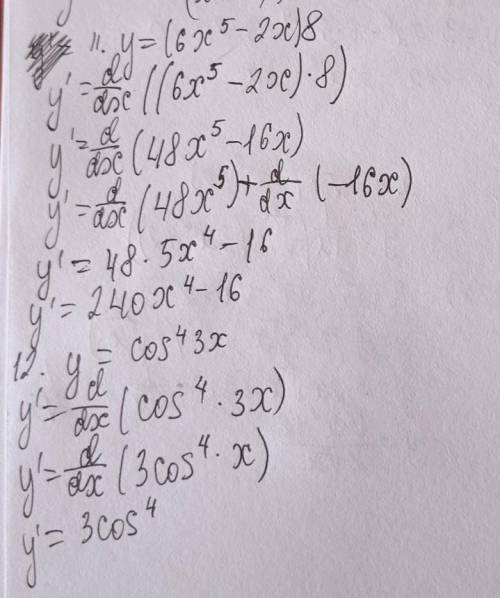 11. y = (6x⁵ - 2x)8
y' = d/dx ((6x⁵ - 2x) · 8)
y' = d/dx (48x⁵ - 16x)
y' = d/dx (48x⁵) + d/dx (-16x)
y' = 48 · 5x⁴ - 16
y' = 240x⁴ - 16
12. y = cos⁴3x
y' = d/dx (cos⁴ · 3x)
y' = d/dx (3cos⁴ · x)
y' = 3cos⁴